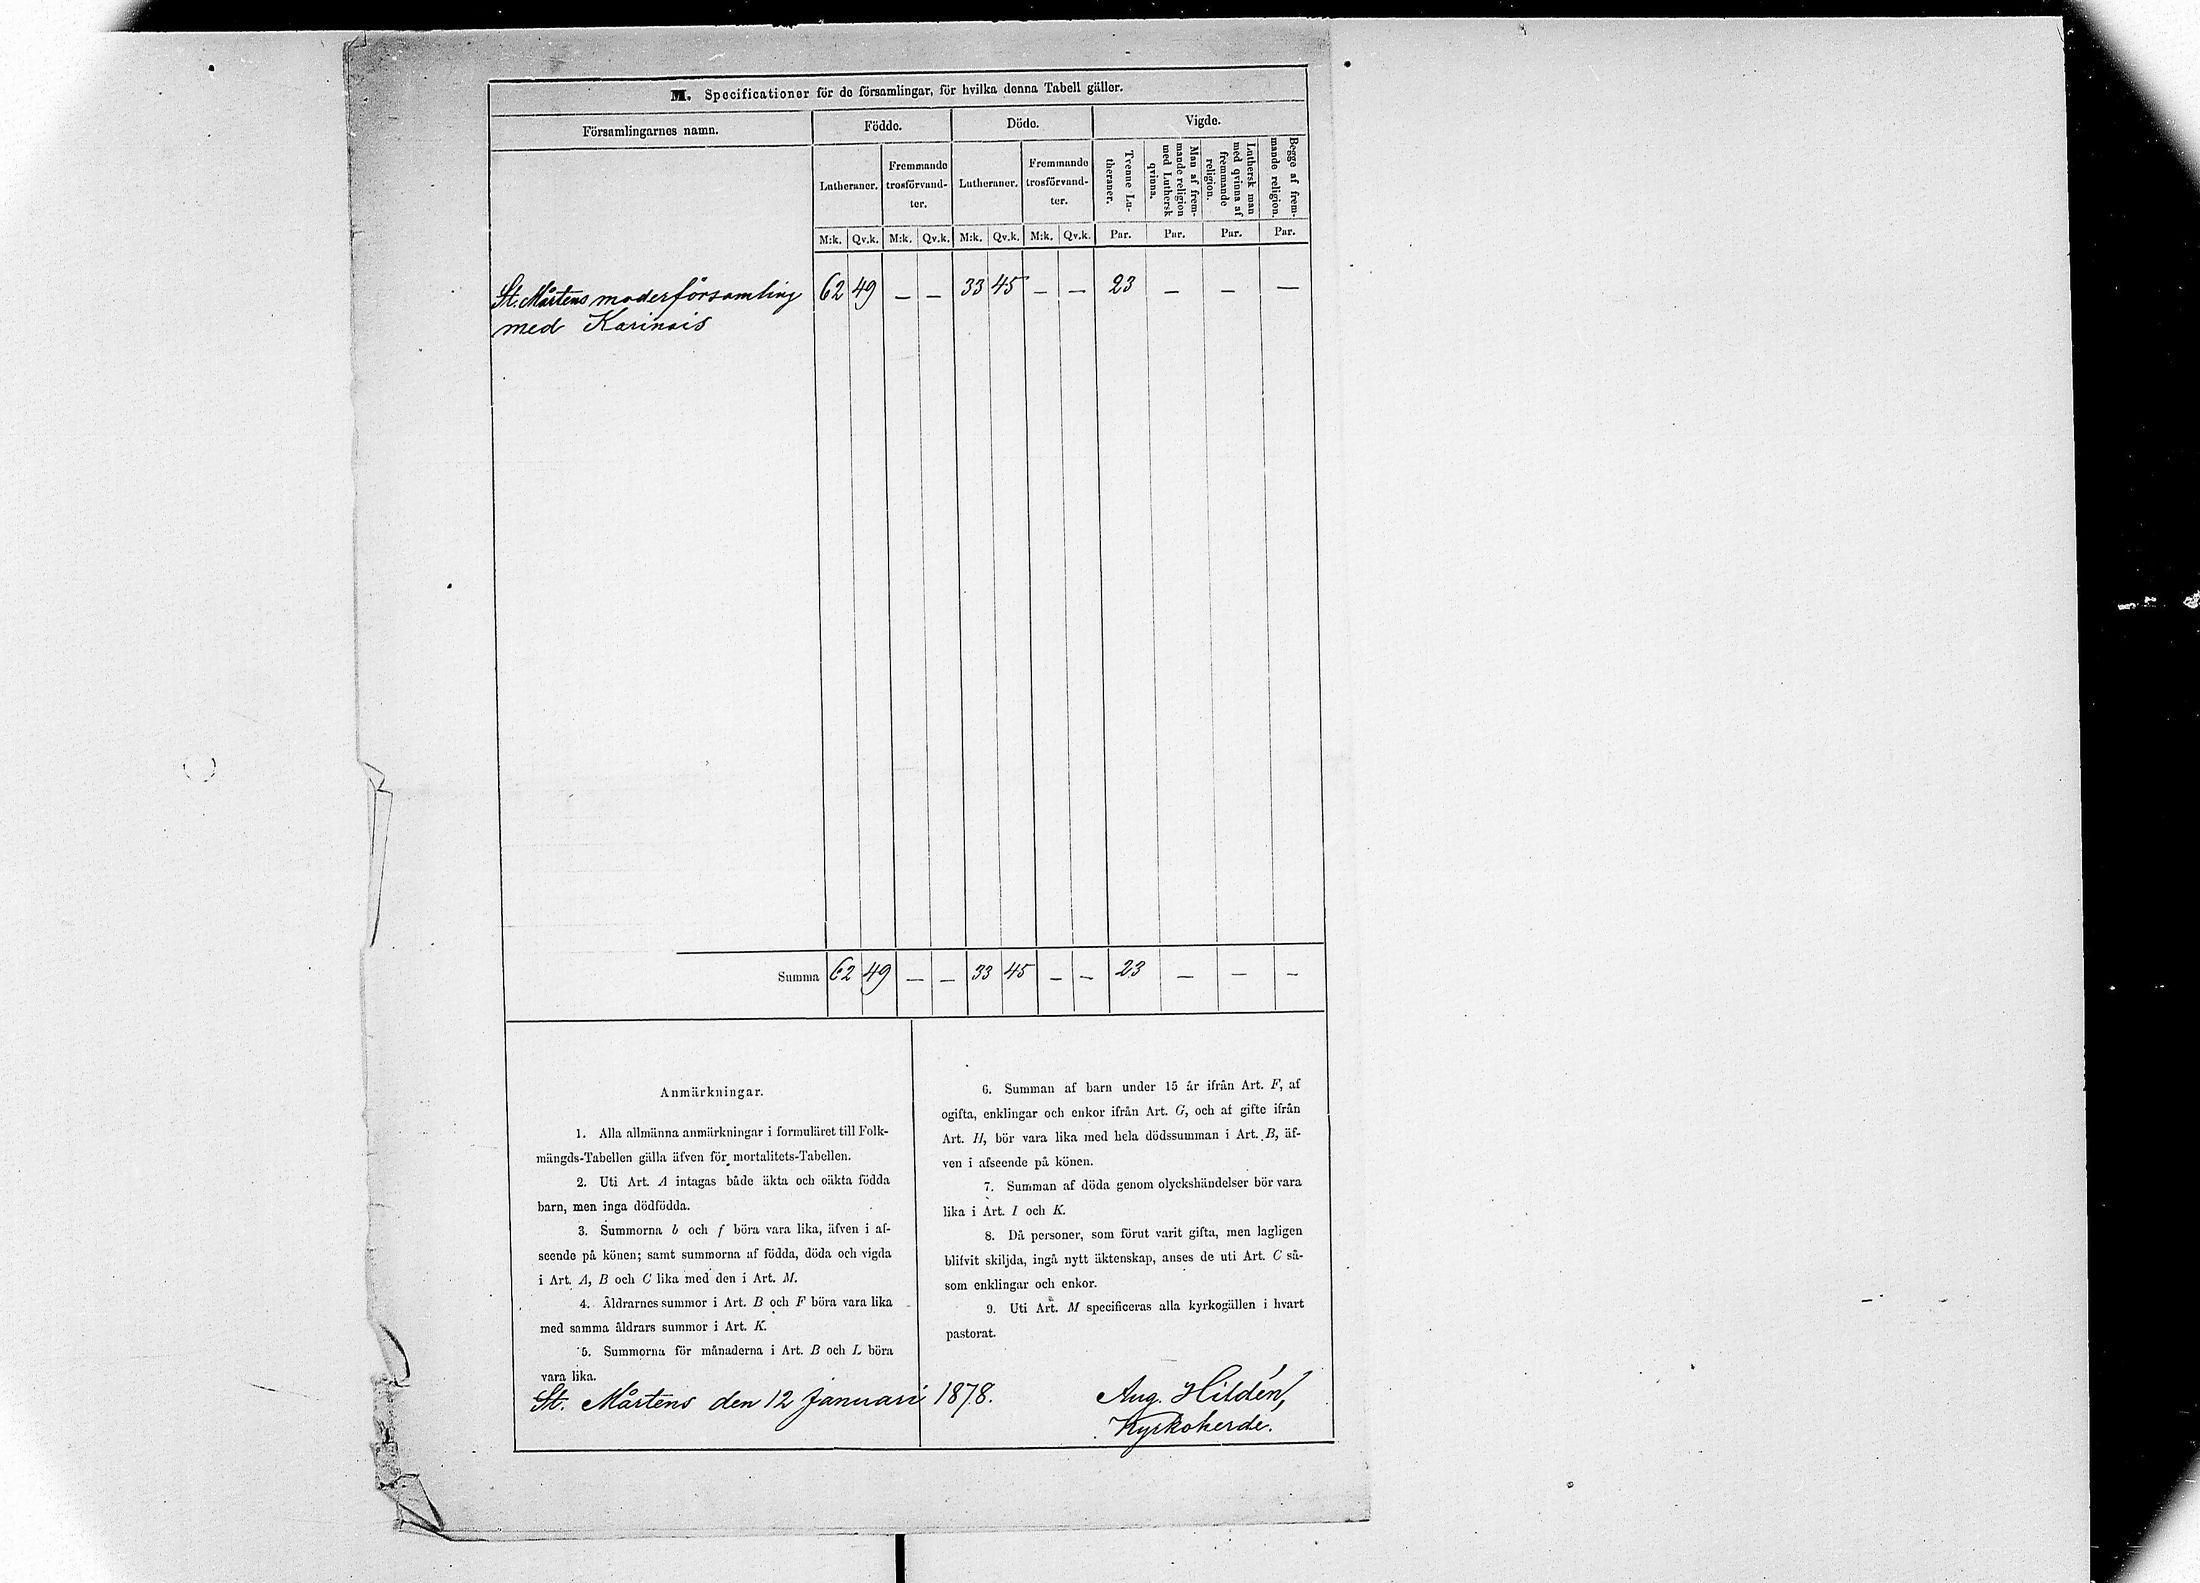 M. Specificationer för de församlingar, för hvilka denna Tabell gäller.
Församlingarnes namn. Födde. Döde. Vigde.
Lutheraner. Fremmande trosförvand-ter. Lutheraner. Fremmande trosförvand-ter. Tvenne Lu-theraner. Man af frem-mande religion med Luthersk qvinna. Luthersk man med qvinna af fremmande religion. Begge af frem-mande religion.
M:k. Qv.k. M:k. Qv.k. M:k. Qv.k. M:k. Qv.k. Par. Par. Par. Par.
St. Mårtens moderförsamling 62 49 — — 33 45 — — 23 — — —
med Karinais
Summa 62 49 — — 33 45 — — 23 — — —
Anmärkningar.
1. Alla allmänna anmärkningar i formuläret till Folk-
mängds-Tabellen gälla äfven för mortalitets-Tabellen.
2. Uti Art. A intagas både äkta och oäkta födda
barn, men inga dödfödda.
3. Summorna b och f böra vara lika, äfven i af-
seende på könen; samt summorna af födda, döda och vigda
i Art. A, B och C lika med den i Art. M.
4. Åldrarnes summor i Art. B och F böra vara lika
med samma åldrars summor i Art. K.
5. Summorna för månaderna i Art. B och L böra
vara lika.
6. Summan af barn under 15 år ifrån Art. F, af
ogifta, enklingar och enkor ifrån Art. G, och af gifte ifrån
Art. H, bör vara lika med hela dödssumman i Art. B, äf-
ven i afseende på könen.
7. Summan af döda genom olyckshändelser bör vara
lika i Art. I och K.
8. Då personer, som förut varit gifta, men lagligen
blifvit skiljda, ingå nytt äktenskap, anses de uti Art. C så-
som enklingar och enkor.
9. Uti Art. M specificeras alla kyrkogällen i hvart
pastorat.
St. Mårtens den 12 Januari 1878.
Aug. Hildén,
Kyrkoherde.